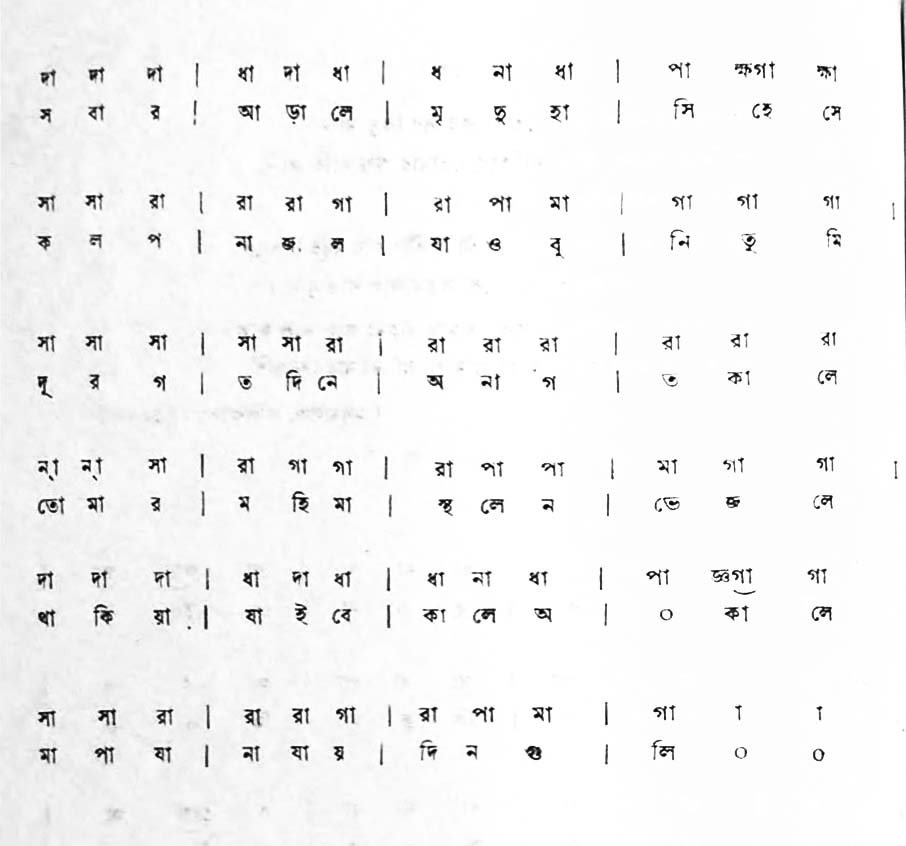 দা দা দা | ধা দা ধা | ধ না ধা | পা হ্মগা হ্মা
স বা র | আ ড়া লে | মৃ দু হা | সি হে সে
সা সা রা | রা রা গা | রা পা মা | গা গা গা |
ক ল প | না জ ল | যা ও বু | নি তু মি
সা সা সা | সা সা রা | রা রা রা | রা রা রা
দূ র গ | ত দি নে | অ না গ | ত কা লে
ন্া ন্া সা | রা গা গা | রা পা পা | মা গা গা |
তো মা র | ম হি মা | স্থ লে ন | ভে জ লে
দা দা দা | ধা দা ধা | ধা না ধা | পা হ্মগা গা
থা কি য়া | যা ই বে | কা লে অ | ০ কা লে
সা সা রা | রা রা গা | রা পা মা | গা া া
মা পা যা | না যা য় | দি ন গু | লি ০ ০